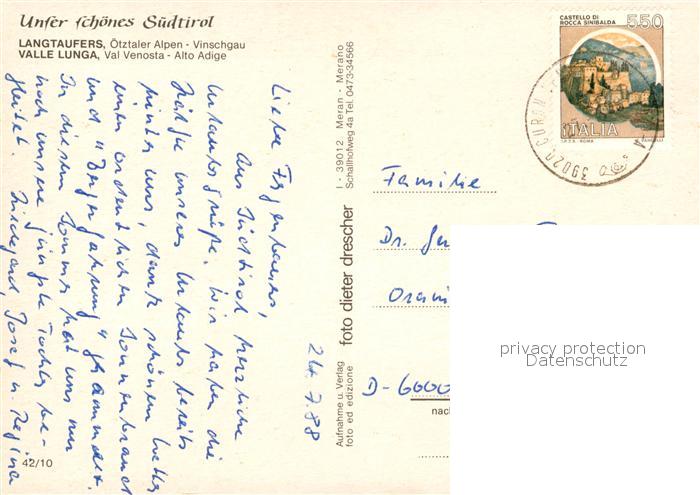 Unser schönes Südtirol
LANGTAUFERS, Ötztaler Alpen - Vinschgau
VALLE LUNGA, Val Venosta - Alto Adige
Liebe
aus Südtirol herzliche
Urlaubsgrüße. Wir haben die
Hälfte unseres Urlaubs bereits
hinter uns, dank schönem Wetter
einen ordentlichen Sonnenbrand
und "Bergerfahrung" gesammelt.
In diesem Sommer hat uns nur
noch unsere jüngste Tochter be-
gleitet. Hildegard, Josef u. Regina
24.7.88
42/10
I - 39012 Meran - Merano
Schallhofweg 4a Tel. 0473-34566
foto dieter drescher
Aufnahme u. Verlag
foto ed edizione
CASTELLO DI
ROCCA SINIBALDA
550
ITALIA
I.P.Z.S. - ROMA
39020 CURON
Familie
Dr.
D-6000
nach
privacy protection
Datenschutz